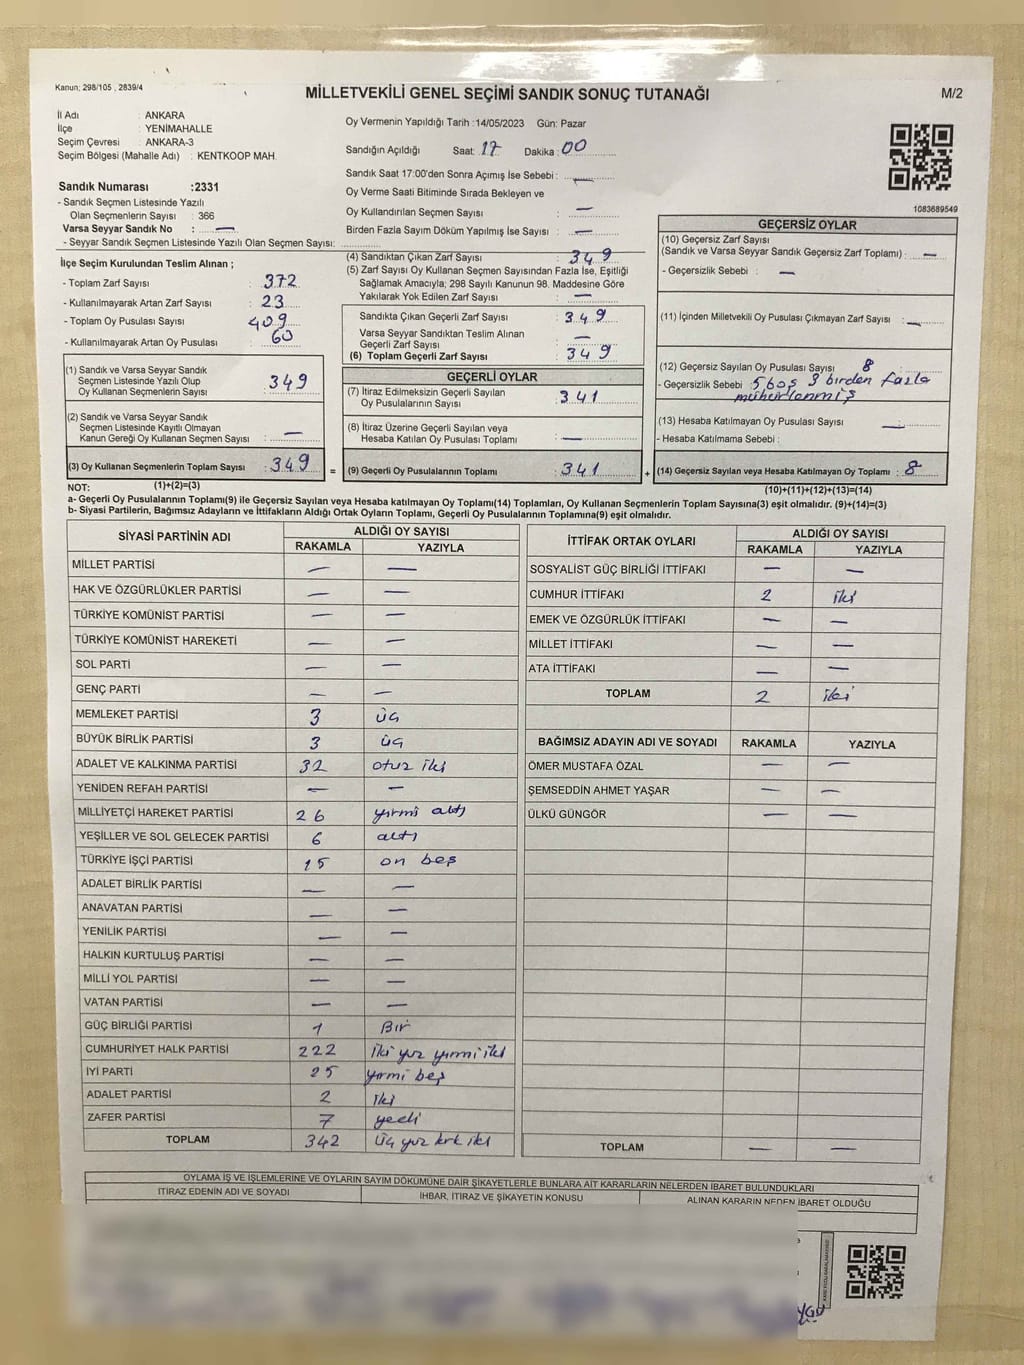 Kanun; 298/105 , 2839/4
MİLLETVEKİLİ GENEL SEÇİMİ SANDIK SONUÇ TUTANAĞI
M/2
İl Adı : ANKARA
İlçe : YENİMAHALLE
Seçim Çevresi : ANKARA-3
Seçim Bölgesi (Mahalle Adı) : KENTKOOP MAH.
Sandık Numarası :2331
- Sandık Seçmen Listesinde Yazılı
Olan Seçmenlerin Sayısı : 366
Varsa Seyyar Sandık No : —
- Seyyar Sandık Seçmen Listesinde Yazılı Olan Seçmen Sayısı:
Oy Vermenin Yapıldığı Tarih :14/05/2023 Gün: Pazar
Sandığın Açıldığı Saat: 17 Dakika : 00
Sandık Saat 17:00'den Sonra Açımış İse Sebebi : —
Oy Verme Saati Bitiminde Sırada Bekleyen ve
Oy Kullandırılan Seçmen Sayısı : —
Birden Fazla Sayım Döküm Yapılmış İse Sayısı : —
1083689549
İlçe Seçim Kurulundan Teslim Alınan ;
- Toplam Zarf Sayısı : 372
- Kullanılmayarak Artan Zarf Sayısı : 23
- Toplam Oy Pusulası Sayısı : 409
- Kullanılmayarak Artan Oy Pusulası : 60
(1) Sandık ve Varsa Seyyar Sandık
Seçmen Listesinde Yazılı Olup
Oy Kullanan Seçmenlerin Sayısı : 349
(2) Sandık ve Varsa Seyyar Sandık
Seçmen Listesinde Kayıtlı Olmayan
Kanun Gereği Oy Kullanan Seçmen Sayısı : —
(3) Oy Kullanan Seçmenlerin Toplam Sayısı : 349 =
(1)+(2)=(3)
(4) Sandıktan Çıkan Zarf Sayısı : 349
(5) Zarf Sayısı Oy Kullanan Seçmen Sayısından Fazla İse, Eşitliği
Sağlamak Amacıyla; 298 Sayılı Kanunun 98. Maddesine Göre
Yakılarak Yok Edilen Zarf Sayısı : —
Sandıkta Çıkan Geçerli Zarf Sayısı : 349
Varsa Seyyar Sandıktan Teslim Alınan
Geçerli Zarf Sayısı : —
(6) Toplam Geçerli Zarf Sayısı : 349
GEÇERLİ OYLAR
(7) İtiraz Edilmeksizin Geçerli Sayılan
Oy Pusulalarının Sayısı : 341
(8) İtiraz Üzerine Geçerli Sayılan veya
Hesaba Katılan Oy Pusulası Toplamı : —
(9) Geçerli Oy Pusulalarının Toplamı : 341 +
GEÇERSİZ OYLAR
(10) Geçersiz Zarf Sayısı
(Sandık ve Varsa Seyyar Sandık Geçersiz Zarf Toplamı) : —
- Geçersizlik Sebebi : —
(11) İçinden Milletvekili Oy Pusulası Çıkmayan Zarf Sayısı : —
(12) Geçersiz Sayılan Oy Pusulası Sayısı : 8
- Geçersizlik Sebebi : 5 boş 3 birden fazla
mühürlenmiş
(13) Hesaba Katılmayan Oy Pusulası Sayısı : —
- Hesaba Katılmama Sebebi :
(14) Geçersiz Sayılan veya Hesaba Katılmayan Oy Toplamı : 8
(10)+(11)+(12)+(13)=(14)
NOT:
a- Geçerli Oy Pusulalarının Toplamı(9) ile Geçersiz Sayılan veya Hesaba katılmayan Oy Toplamı(14) Toplamları, Oy Kullanan Seçmenlerin Toplam Sayısına(3) eşit olmalıdır. (9)+(14)=(3)
b- Siyasi Partilerin, Bağımsız Adayların ve İttifakların Aldığı Ortak Oyların Toplamı, Geçerli Oy Pusulalarının Toplamına(9) eşit olmalıdır.
SİYASİ PARTİNİN ADI ALDIĞI OY SAYISI
RAKAMLA YAZIYLA
MİLLET PARTİSİ — —
HAK VE ÖZGÜRLÜKLER PARTİSİ — —
TÜRKİYE KOMÜNİST PARTİSİ — —
TÜRKİYE KOMÜNİST HAREKETİ — —
SOL PARTİ — —
GENÇ PARTİ — —
MEMLEKET PARTİSİ 3 üç
BÜYÜK BİRLİK PARTİSİ 3 üç
ADALET VE KALKINMA PARTİSİ 32 otuz iki
YENİDEN REFAH PARTİSİ — —
MİLLİYETÇİ HAREKET PARTİSİ 26 yirmi altı
YEŞİLLER VE SOL GELECEK PARTİSİ 6 altı
TÜRKİYE İŞÇİ PARTİSİ 15 on beş
ADALET BİRLİK PARTİSİ — —
ANAVATAN PARTİSİ — —
YENİLİK PARTİSİ — —
HALKIN KURTULUŞ PARTİSİ — —
MİLLİ YOL PARTİSİ — —
VATAN PARTİSİ — —
GÜÇ BİRLİĞİ PARTİSİ 1 Bir
CUMHURİYET HALK PARTİSİ 222 iki yüz yirmi iki
İYİ PARTİ 25 yirmi beş
ADALET PARTİSİ 2 iki
ZAFER PARTİSİ 7 yedi
TOPLAM 342 üç yüz kırk iki
İTTİFAK ORTAK OYLARI ALDIĞI OY SAYISI
RAKAMLA YAZIYLA
SOSYALİST GÜÇ BİRLİĞİ İTTİFAKI — —
CUMHUR İTTİFAKI 2 iki
EMEK VE ÖZGÜRLÜK İTTİFAKI — —
MİLLET İTTİFAKI — —
ATA İTTİFAKI — —
TOPLAM 2 iki
BAĞIMSIZ ADAYIN ADI VE SOYADI RAKAMLA YAZIYLA
ÖMER MUSTAFA ÖZAL — —
ŞEMSEDDİN AHMET YAŞAR — —
ÜLKÜ GÜNGÖR — —
TOPLAM — —
OYLAMA İŞ VE İŞLEMLERİNE VE OYLARIN SAYIM DÖKÜMÜNE DAİR ŞİKAYETLERLE BUNLARA AİT KARARLARIN NELERDEN İBARET BULUNDUKLARI
İTİRAZ EDENİN ADI VE SOYADI İHBAR, İTİRAZ VE ŞİKAYETİN KONUSU ALINAN KARARIN NEDEN İBARET OLDUĞU